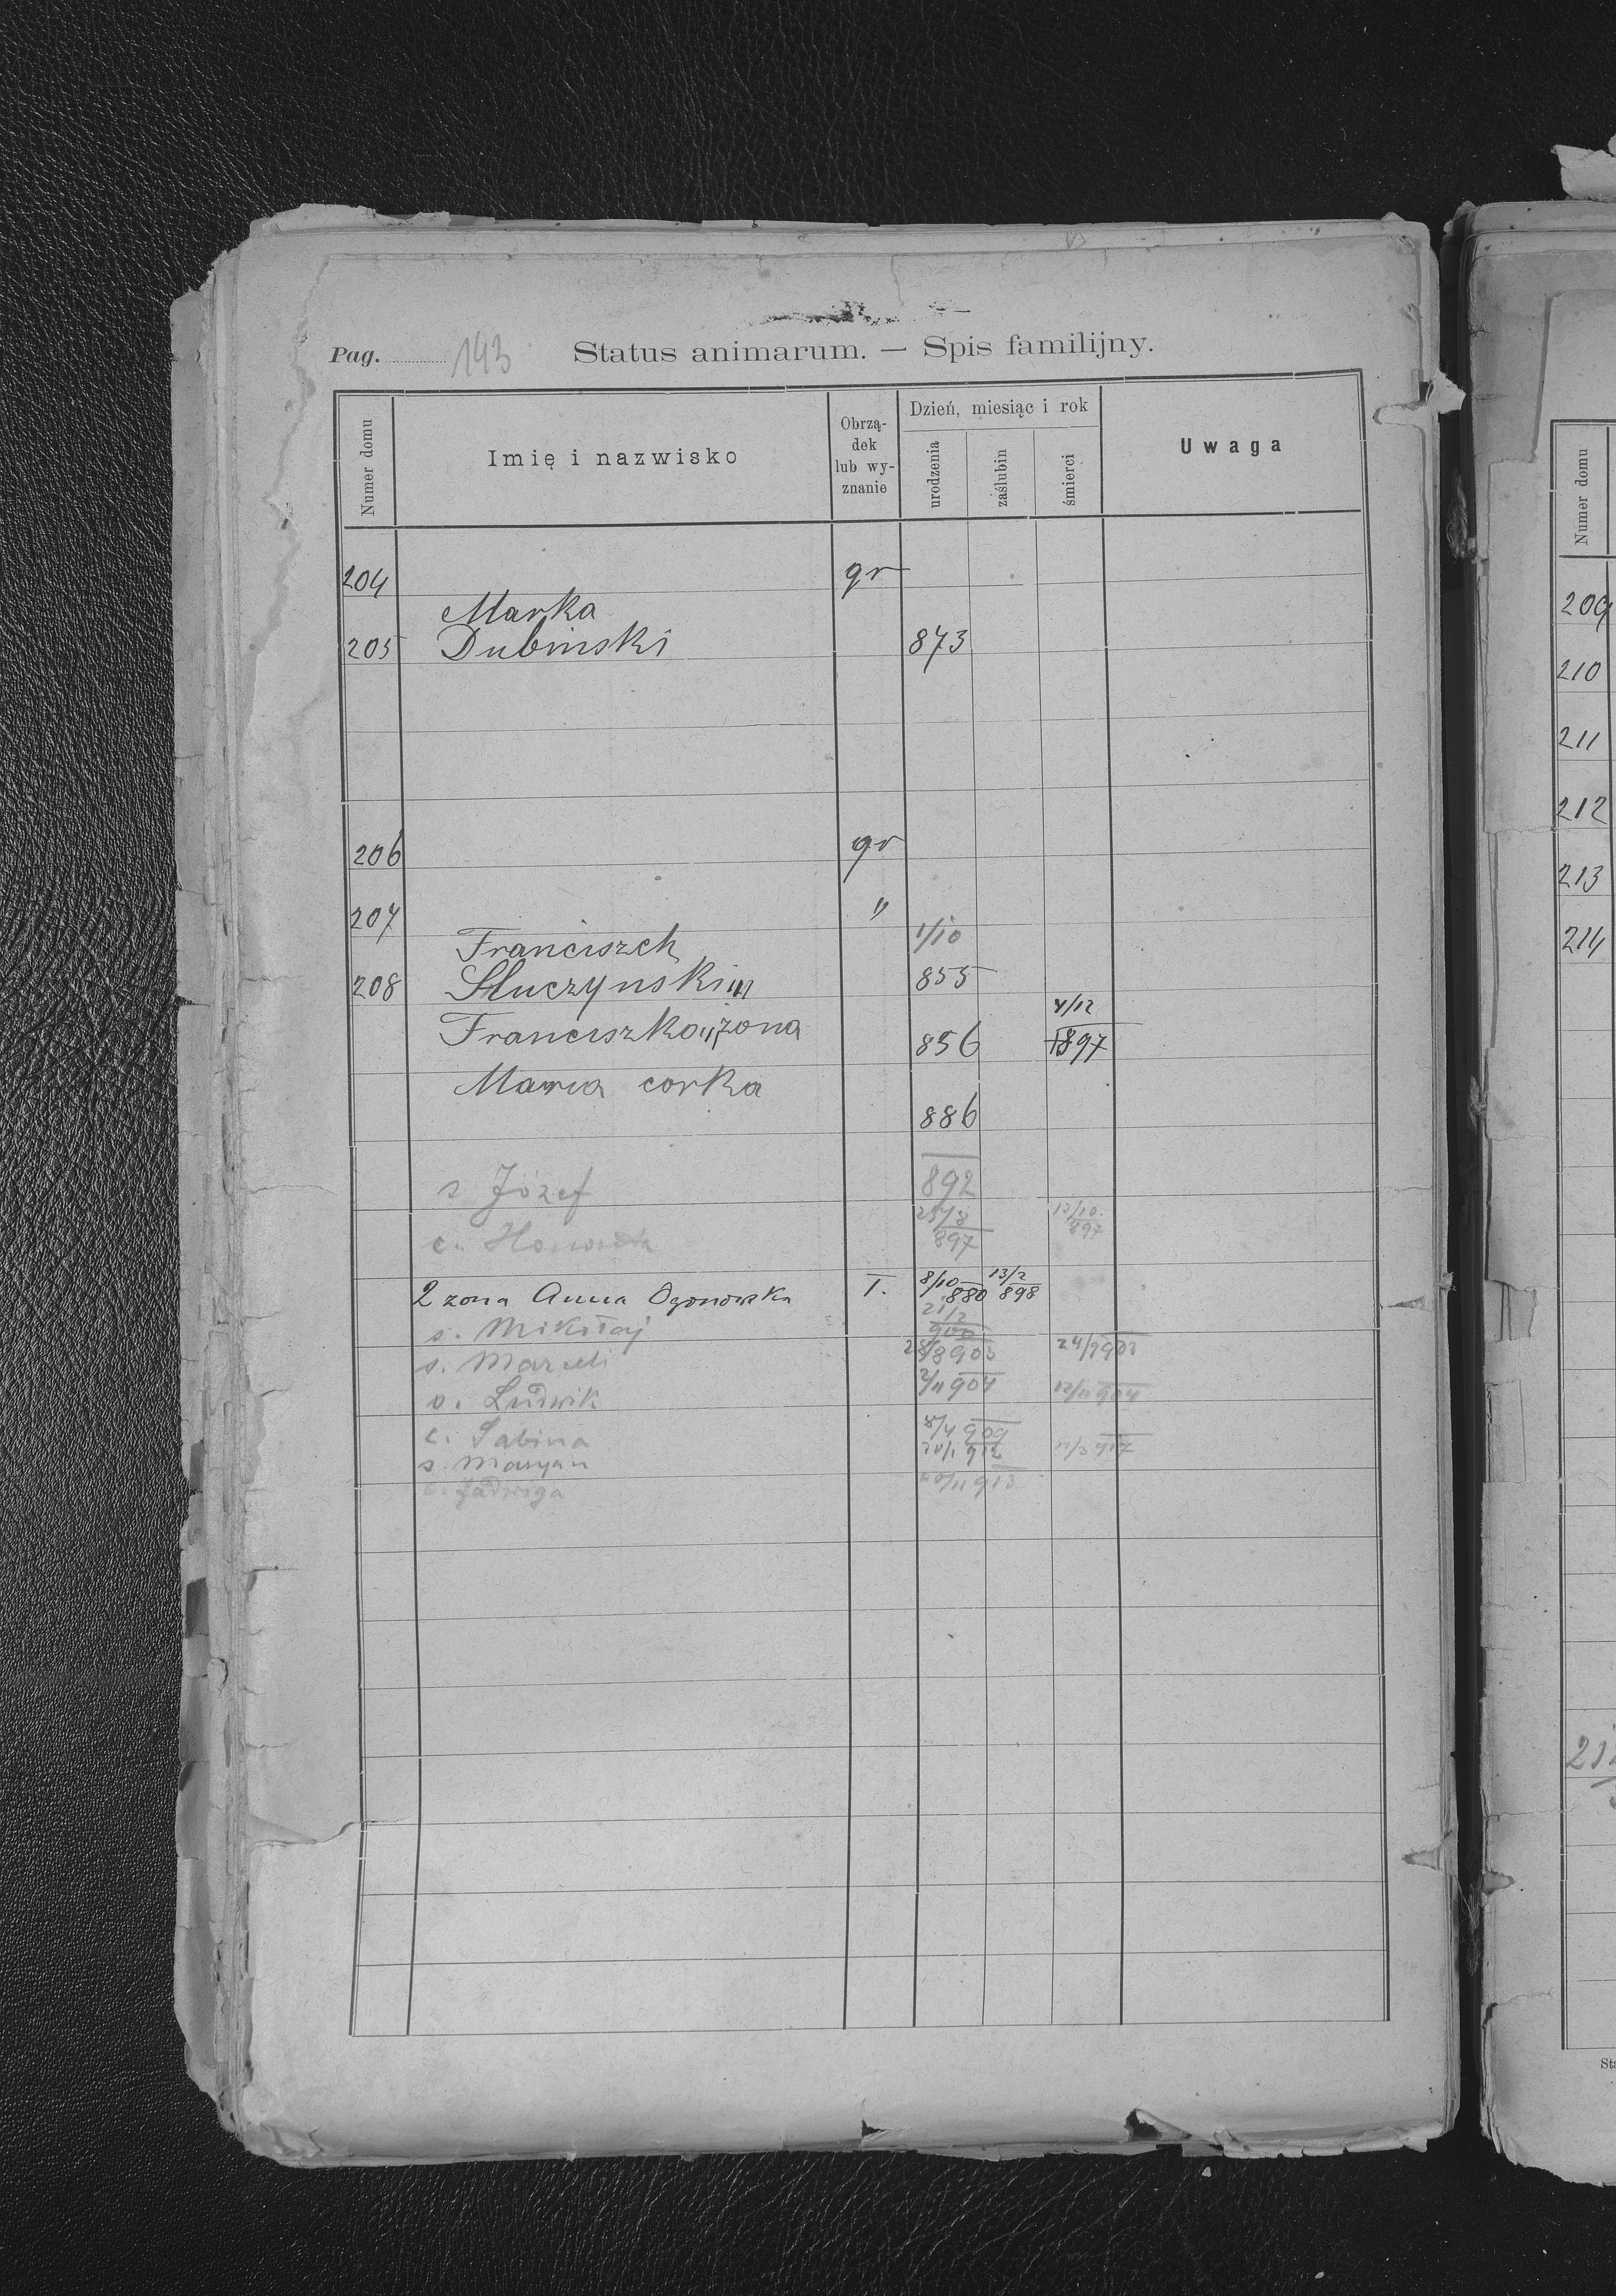 Pag. 143 Status animarum. — Spis familijny.
Numer domu
Imię i nazwisko
Obrzą-
dek
lub wy-
znanie
Dzień, miesiąc i rok
urodzenia
zaślubin
śmierci
Uwaga
204 gr
Marka
205 Dubinski 873
206 gr
207 "
Franciszek 1/10
208 855
4/12
Franciszka żona 856 +897
Marya corka
886
s Józef 892
c. 25/8 13/10.
897 897
2 zona Anna Ogonowska 1. 8/10 880 13/2 898
s. Mikołaj 21/2 900
s. Marceli 903
s. Ludwik 2/11 904 12/11 904
c. Sabina 8/4 909
s. Maryan 20/1 912 11/3 917
Jadwiga 913
Numer domu
209
210
211
212
213
214